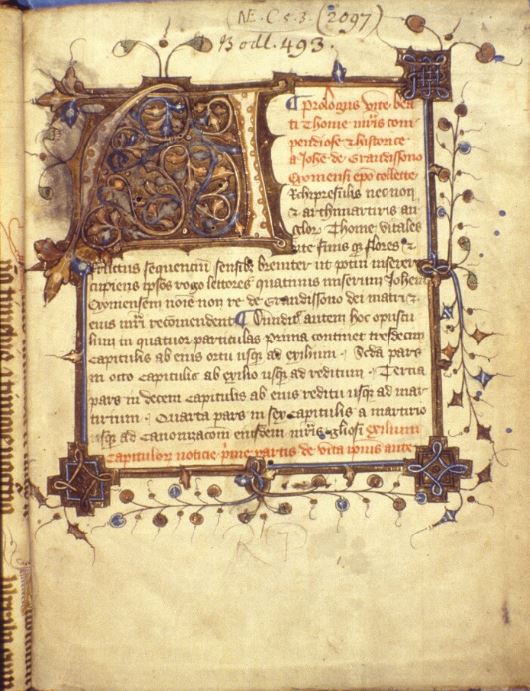 (NE. C. 5. 3. (2097)
Bodl. 493.
Prologus vite bea
ti Thome mr̄is com
pendiose & historice
a Joh̄e de Grandissono
Exoniensi ep̄o collecte
Rchipresulis necnon
& archimartiris an
glor̄ Thome vitales
vite finis q̄ flores &
fructus sequencium sensib; breviter ut potui inserere
cupiens ip̄sos rogo lectores quatinus miserum Joh̄em
Exoniensem noīe non re de Grandissono dei matri &
eius mr̄i recomendent Dividit̄ autem hoc opuscu
lum in quatuor particulas Prima continet tresdecim
capitulis ab eius ortu usq; ad exilium . Sc̄da pars
in octo capitulis ab exilio usq; ad reditum . Tertia
pars in decem capitulis ab eius reditu usq; ad mar
tirium . Quarta pars in sex capitulis a martirio
usq; ad canonizacōm eiusdem mr̄is gl̄iosi exilium
Capitulor̄ noticie p̄me partis de vita ip̄ius ante